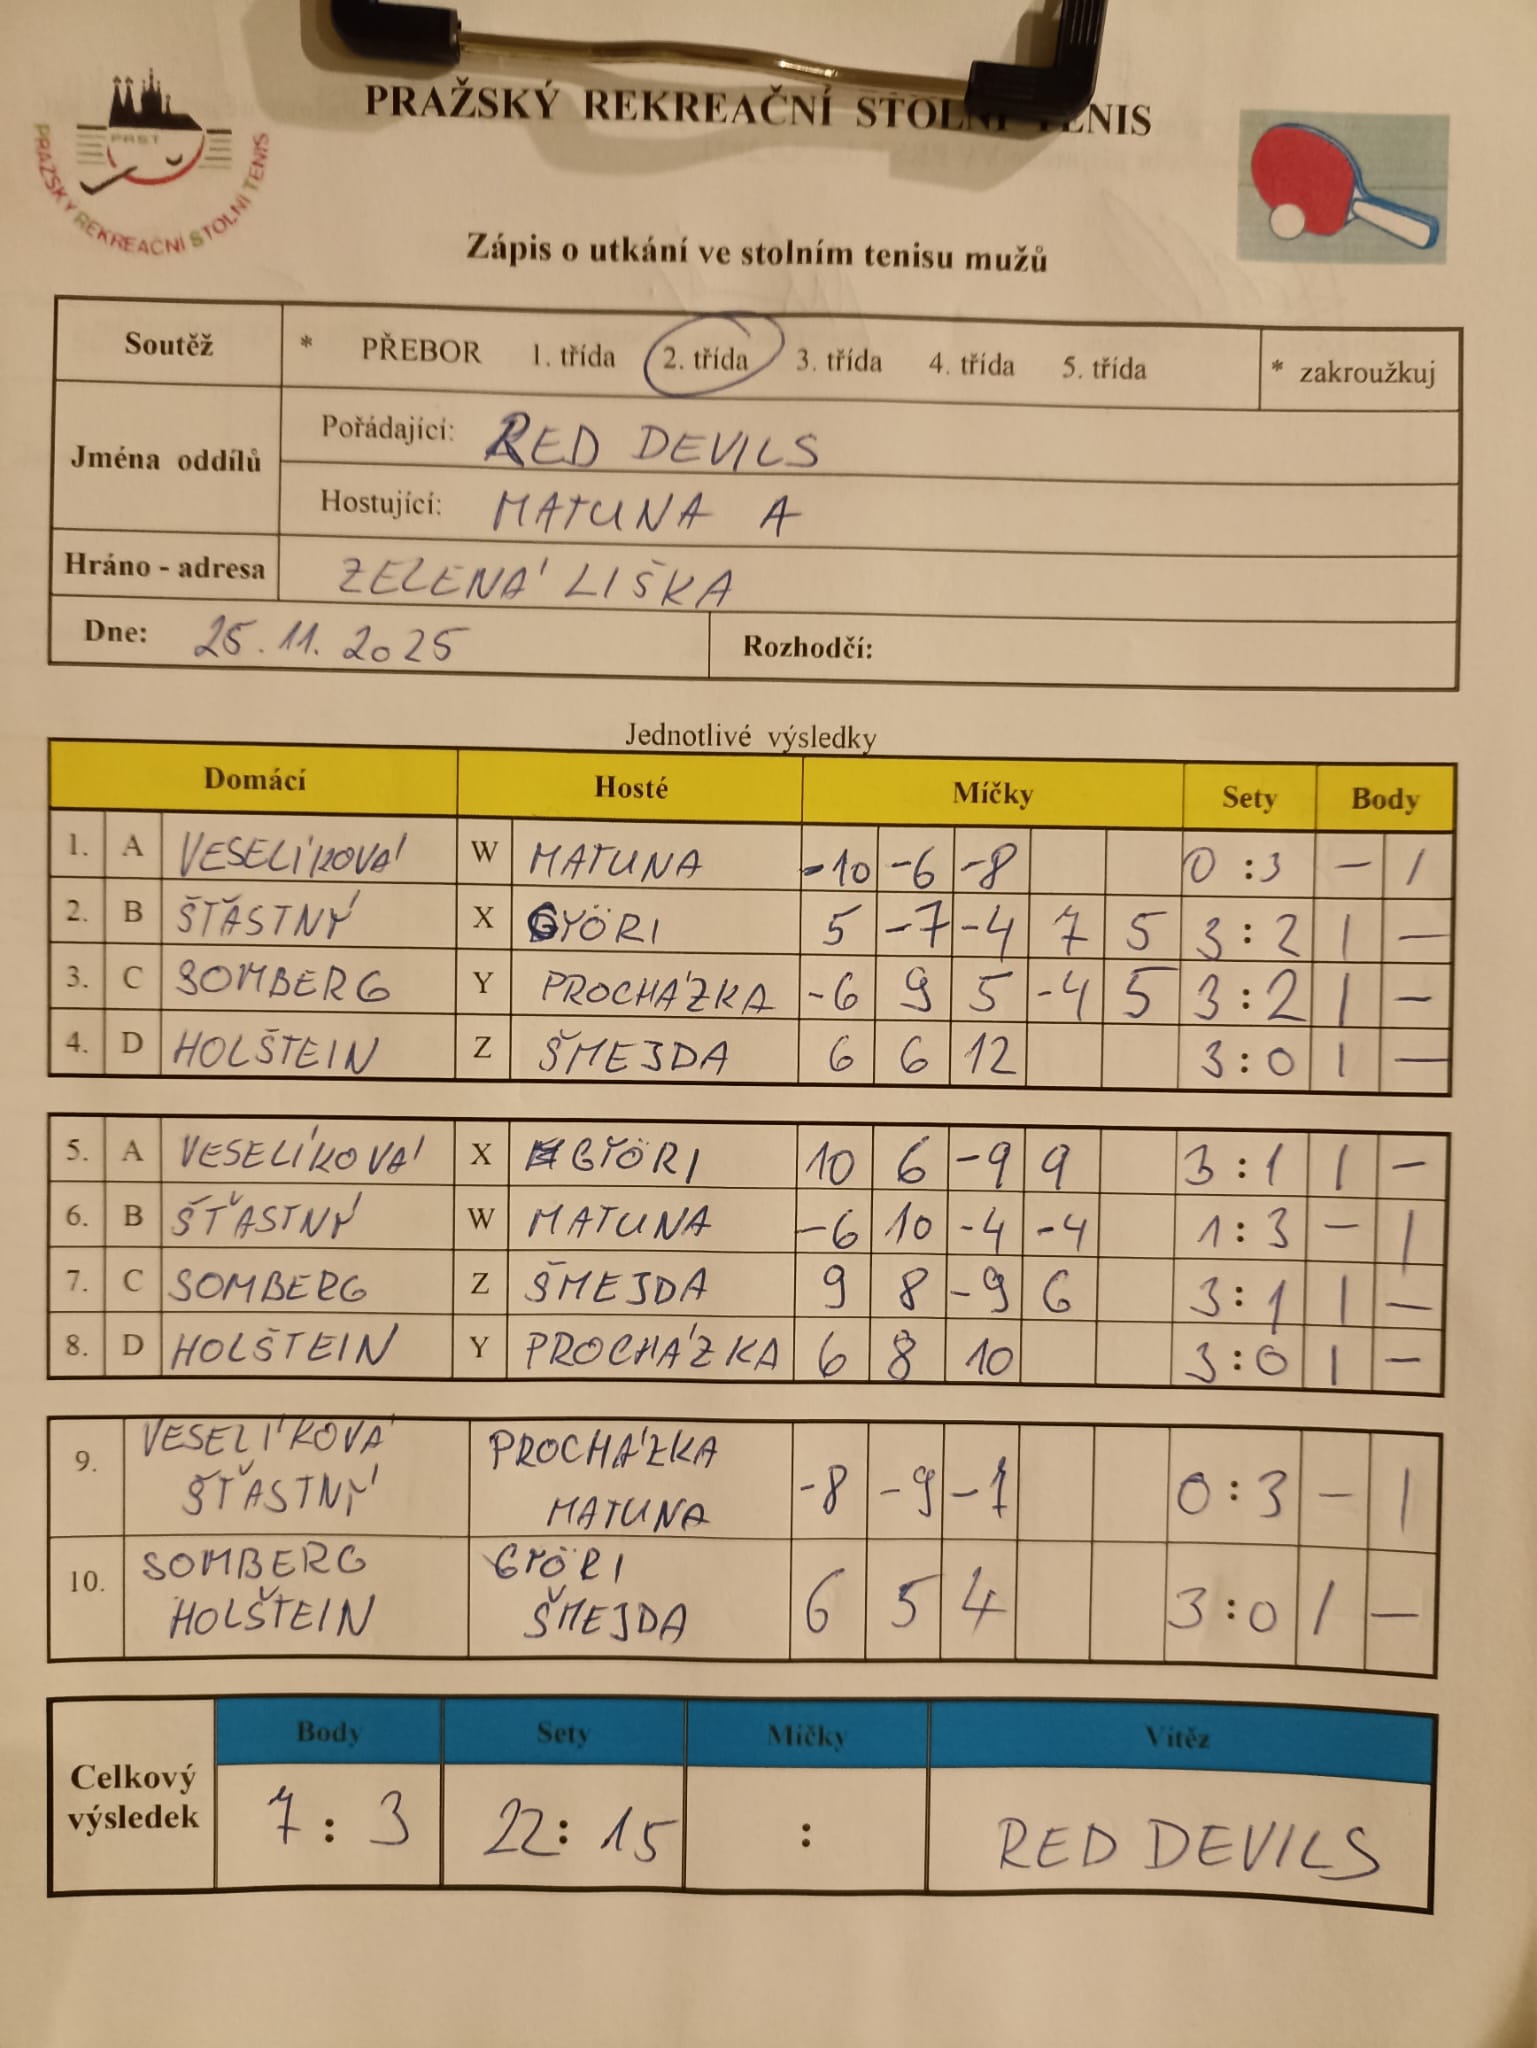 PRAŽSKÝ REKREAČNÍ STOLNÍ TENIS
PRST
PRAŽSKÝ REKREAČNÍ STOLNÍ TENIS
Zápis o utkání ve stolním tenisu mužů
Soutěž * PŘEBOR 1. třída 2. třída 3. třída 4. třída 5. třída * zakroužkuj
Jména oddílů
Pořádající: RED DEVILS
Hostující: MATUNA A
Hráno - adresa ZELENÁ LIŠKA
Dne: 25.11.2025 Rozhodčí:
Jednotlivé výsledky
Domácí Hosté Míčky Sety Body
1. A VESELÍKOVÁ W MATUNA -10 -6 -8 0:3 - 1
2. B ŠŤASTNÝ X GYÖRI 5 -7 -4 7 5 3:2 1 -
3. C SOMBERG Y PROCHÁZKA -6 9 5 -4 5 3:2 1 -
4. D HOLŠTEIN Z ŠMEJDA 6 6 12 3:0 1 -
5. A VESELÍKOVÁ X GYÖRI 10 6 -9 9 3:1 1 -
6. B ŠŤASTNÝ W MATUNA -6 10 -4 -4 1:3 - 1
7. C SOMBERG Z ŠMEJDA 9 8 -9 6 3:1 1 -
8. D HOLŠTEIN Y PROCHÁZKA 6 8 10 3:0 1 -
VESELÍKOVÁ PROCHÁZKA
9. ŠŤASTNÝ MATUNA -8 -9 -7 0:3 - 1
SOMBERG GYÖRI
10. HOLŠTEIN ŠMEJDA 6 5 4 3:0 1 -
Body Sety Míčky Vítěz
Celkový
výsledek 7:3 22:15 : RED DEVILS